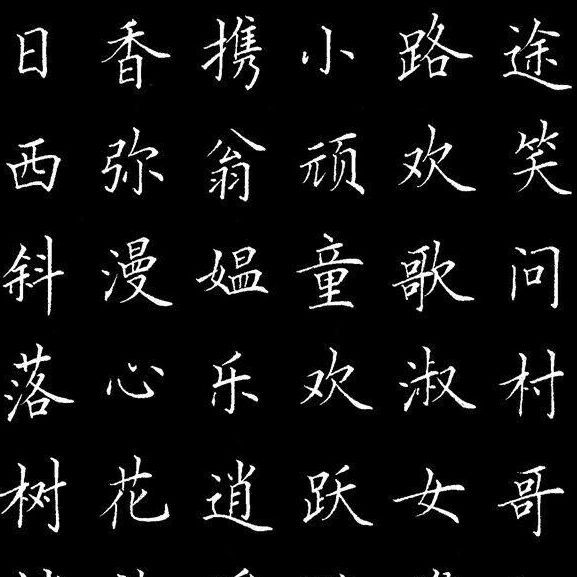 途笑问村哥
路欢歌淑女
小顽童欢跃
携翁媪乐逍
香弥漫心花
日西斜落树